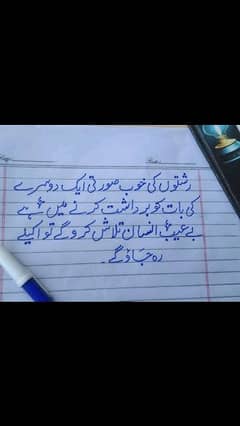 رشتوں کی خوب صورتی ایک دوسرے
کی بات کو برداشت کرنے میں ہے
بے عیب انسان تلاش کرو گے تو اکیلے
رہ جاؤ گے۔